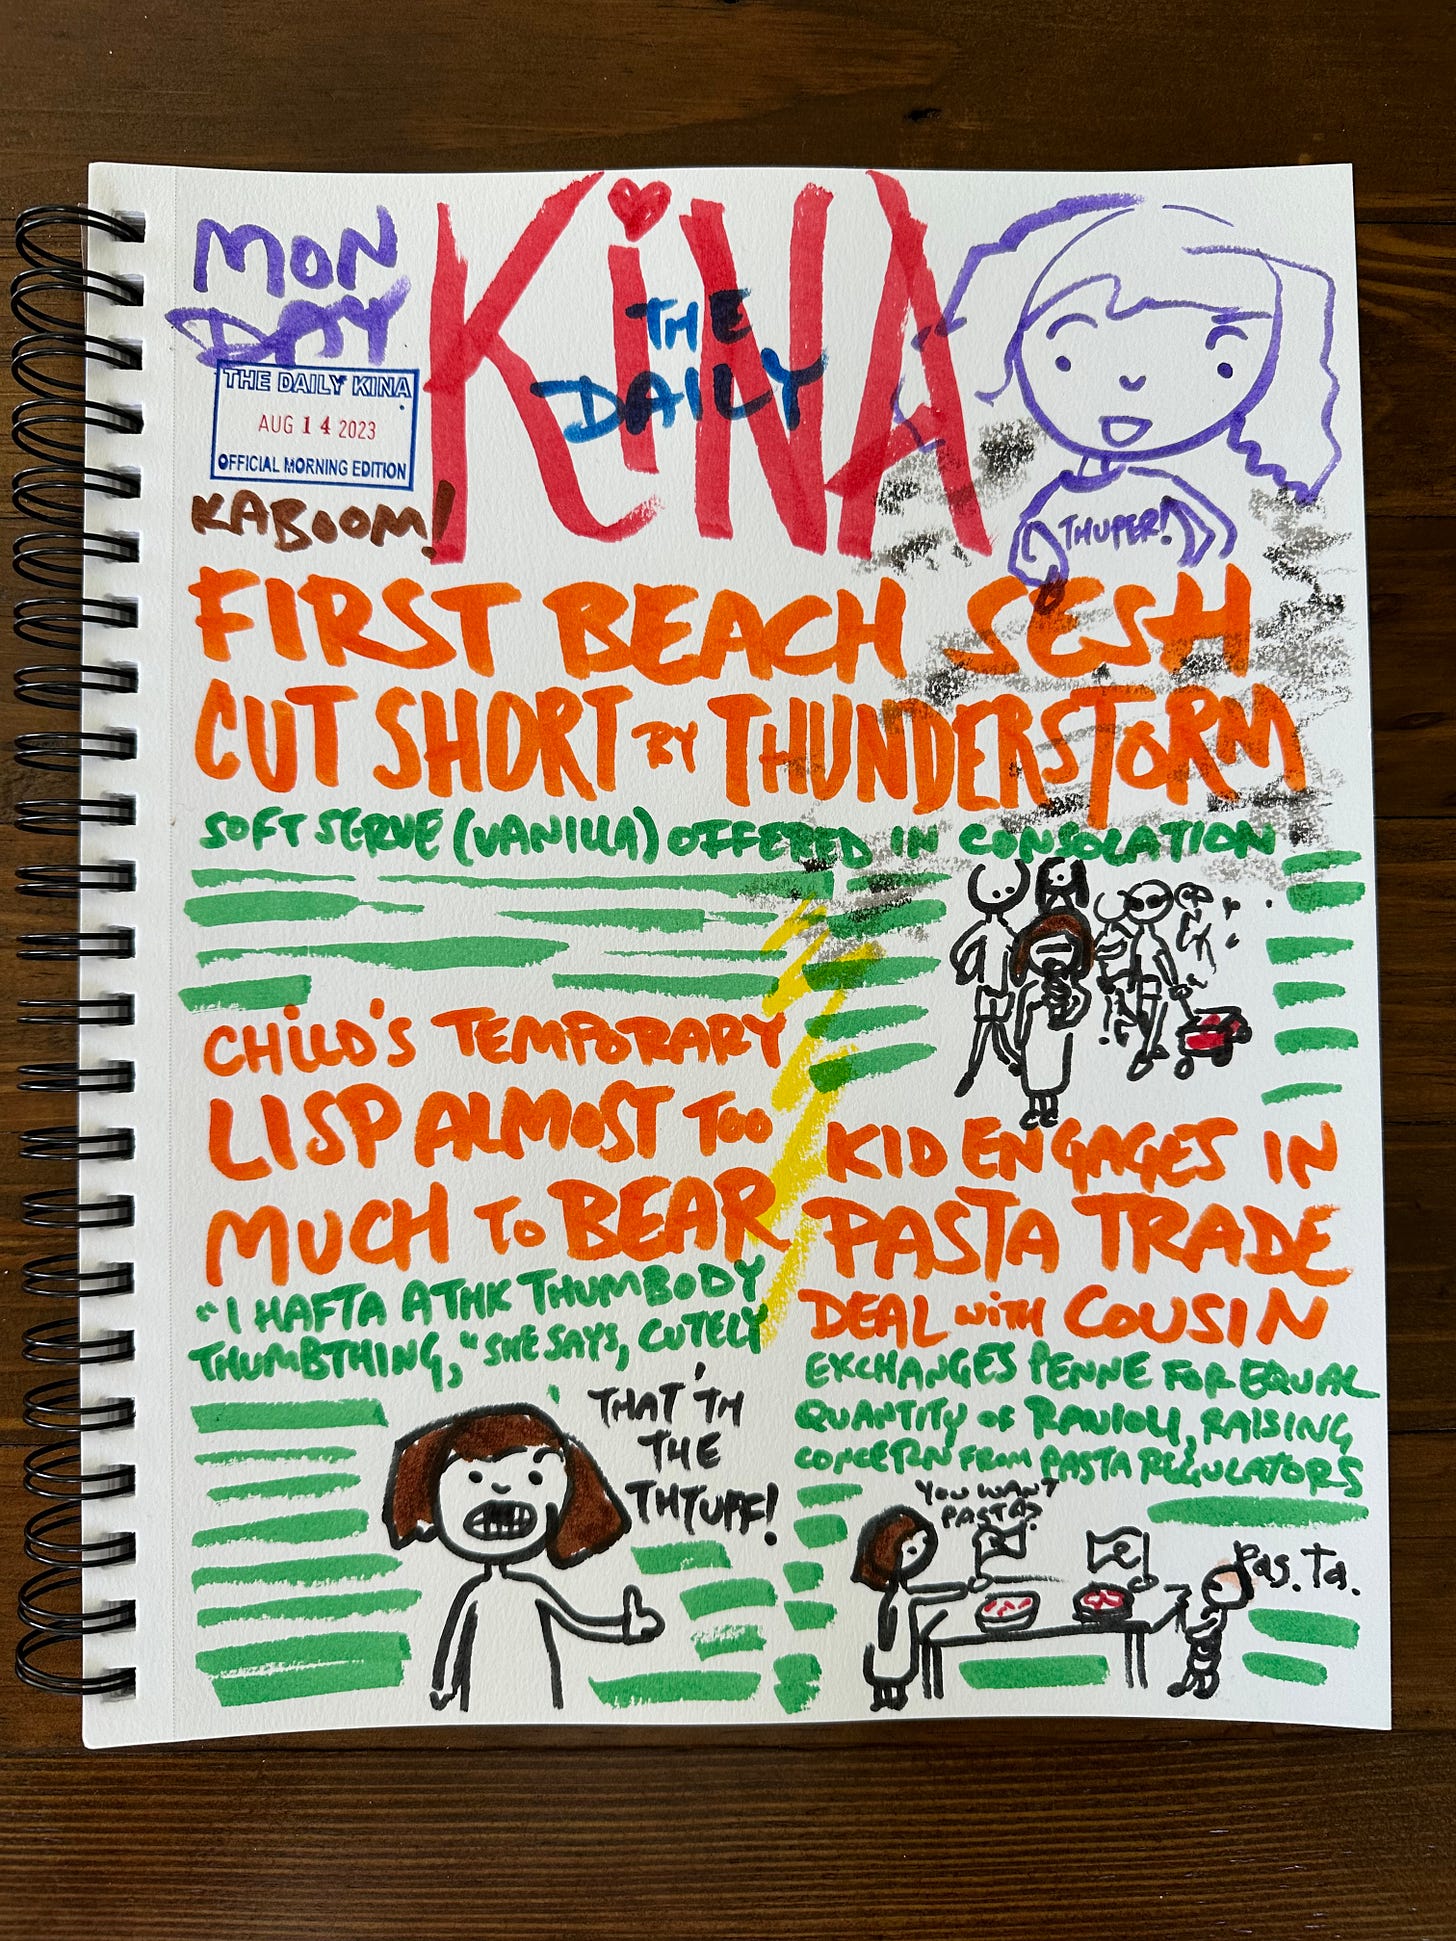 MON
DAY
THE DAILY KINA
AUG 14 2023
OFFICIAL MORNING EDITION
KABOOM!
KiNA
THE
DAILY
THUPER!
FIRST BEACH SESH
CUT SHORT BY THUNDERSTORM
SOFT SERVE (VANILLA) OFFERED IN CONSOLATION
CHiLD'S TEMPORARY
LISP ALMOST TOO
MUCH TO BEAR
"I HAFTA ATHK THUMBODY
THUMBTHING," SHE SAYS, CUTELY
THAT'TH
THE
THTUFF!
KID ENGAGES IN
PASTA TRADE
DEAL WITH COUSIN
EXCHANGES PENNE FOR EQUAL
QUANTITY OF RAVIOLI, RAISING
CONCERN FROM PASTA REGULATORS
YOU WANT
PASTA?
Pas.Ta.